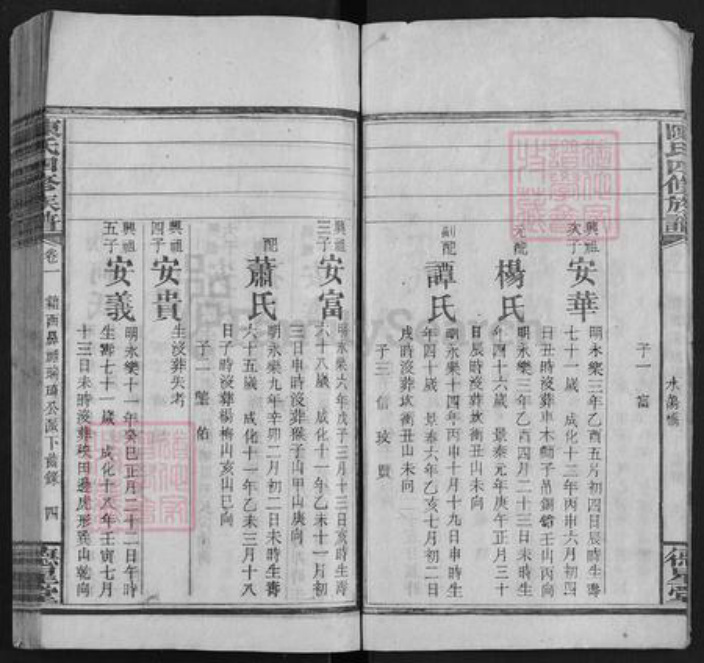 陳氏四修族譜
德星堂
子一富
興祖次子
安華
明永樂三年乙酉五月初四日辰時生壽
七十一歲 成化十二年丙申六月初四
日丑時沒葬車木
壬山丙向
元配
楊氏
明永樂三年乙酉四月二十三日未時生
年四十六歲 景泰元年庚午正月三十
日辰時沒葬坎衝丑山未向
副配
譚氏
明永樂十四年丙申十月十九日申時生
年四十歲 景泰六年乙亥七月初二日
戌時沒葬坎衝丑山未向
子三 信 玫 賢
興祖三子
安富
明永樂六年戊子三月十三日亥時生壽
六十八歲 成化十一年乙未十一月初
三日申時沒葬猴子山甲山庚向
配
蕭氏
明永樂九年辛卯二月初二日未時生壽
六十五歲 成化十一年乙未三月十八
日子時沒葬楊梅山亥山巳向
子二
佑
興祖四子
安貴
生沒葬失考
興祖五子
安義
明永樂十一年癸巳正月二十二日午時
生壽七十一歲 成化十八年壬寅七月
十三日未時沒葬秧田邊虎形巽山乾向
陳氏四修族譜
卷一
公派下齒錄
四
德星堂